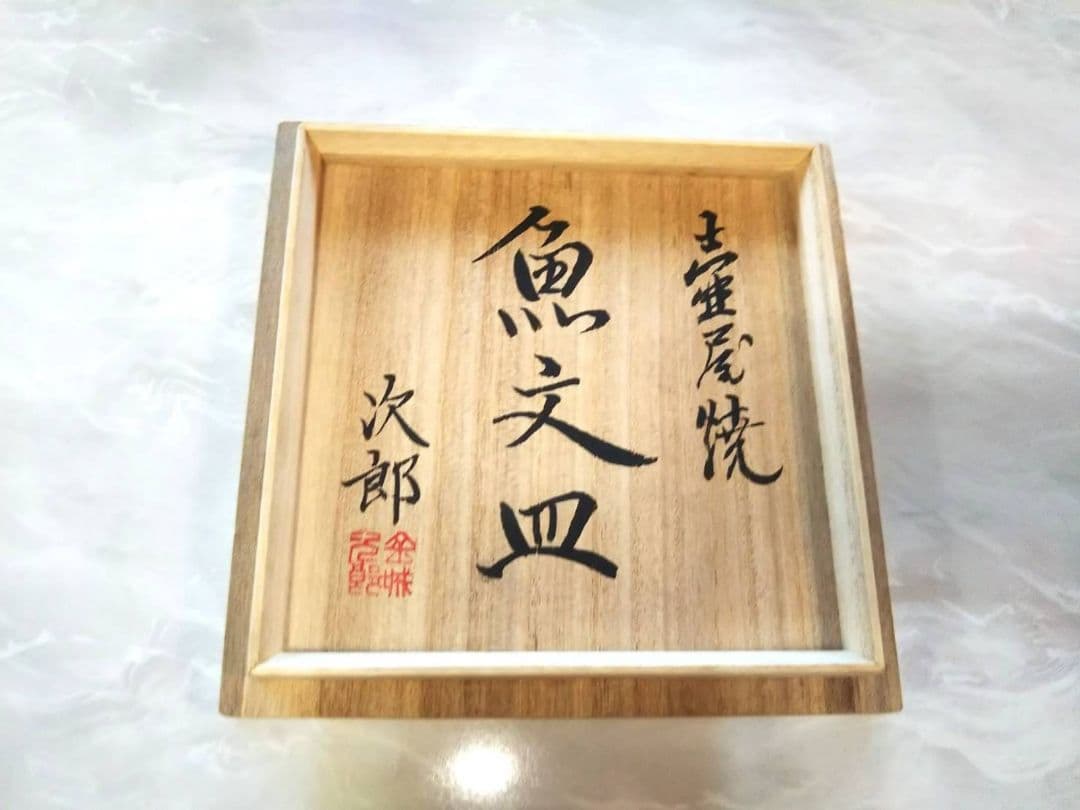 壷屋焼
魚文皿
次郎
金城
次郎